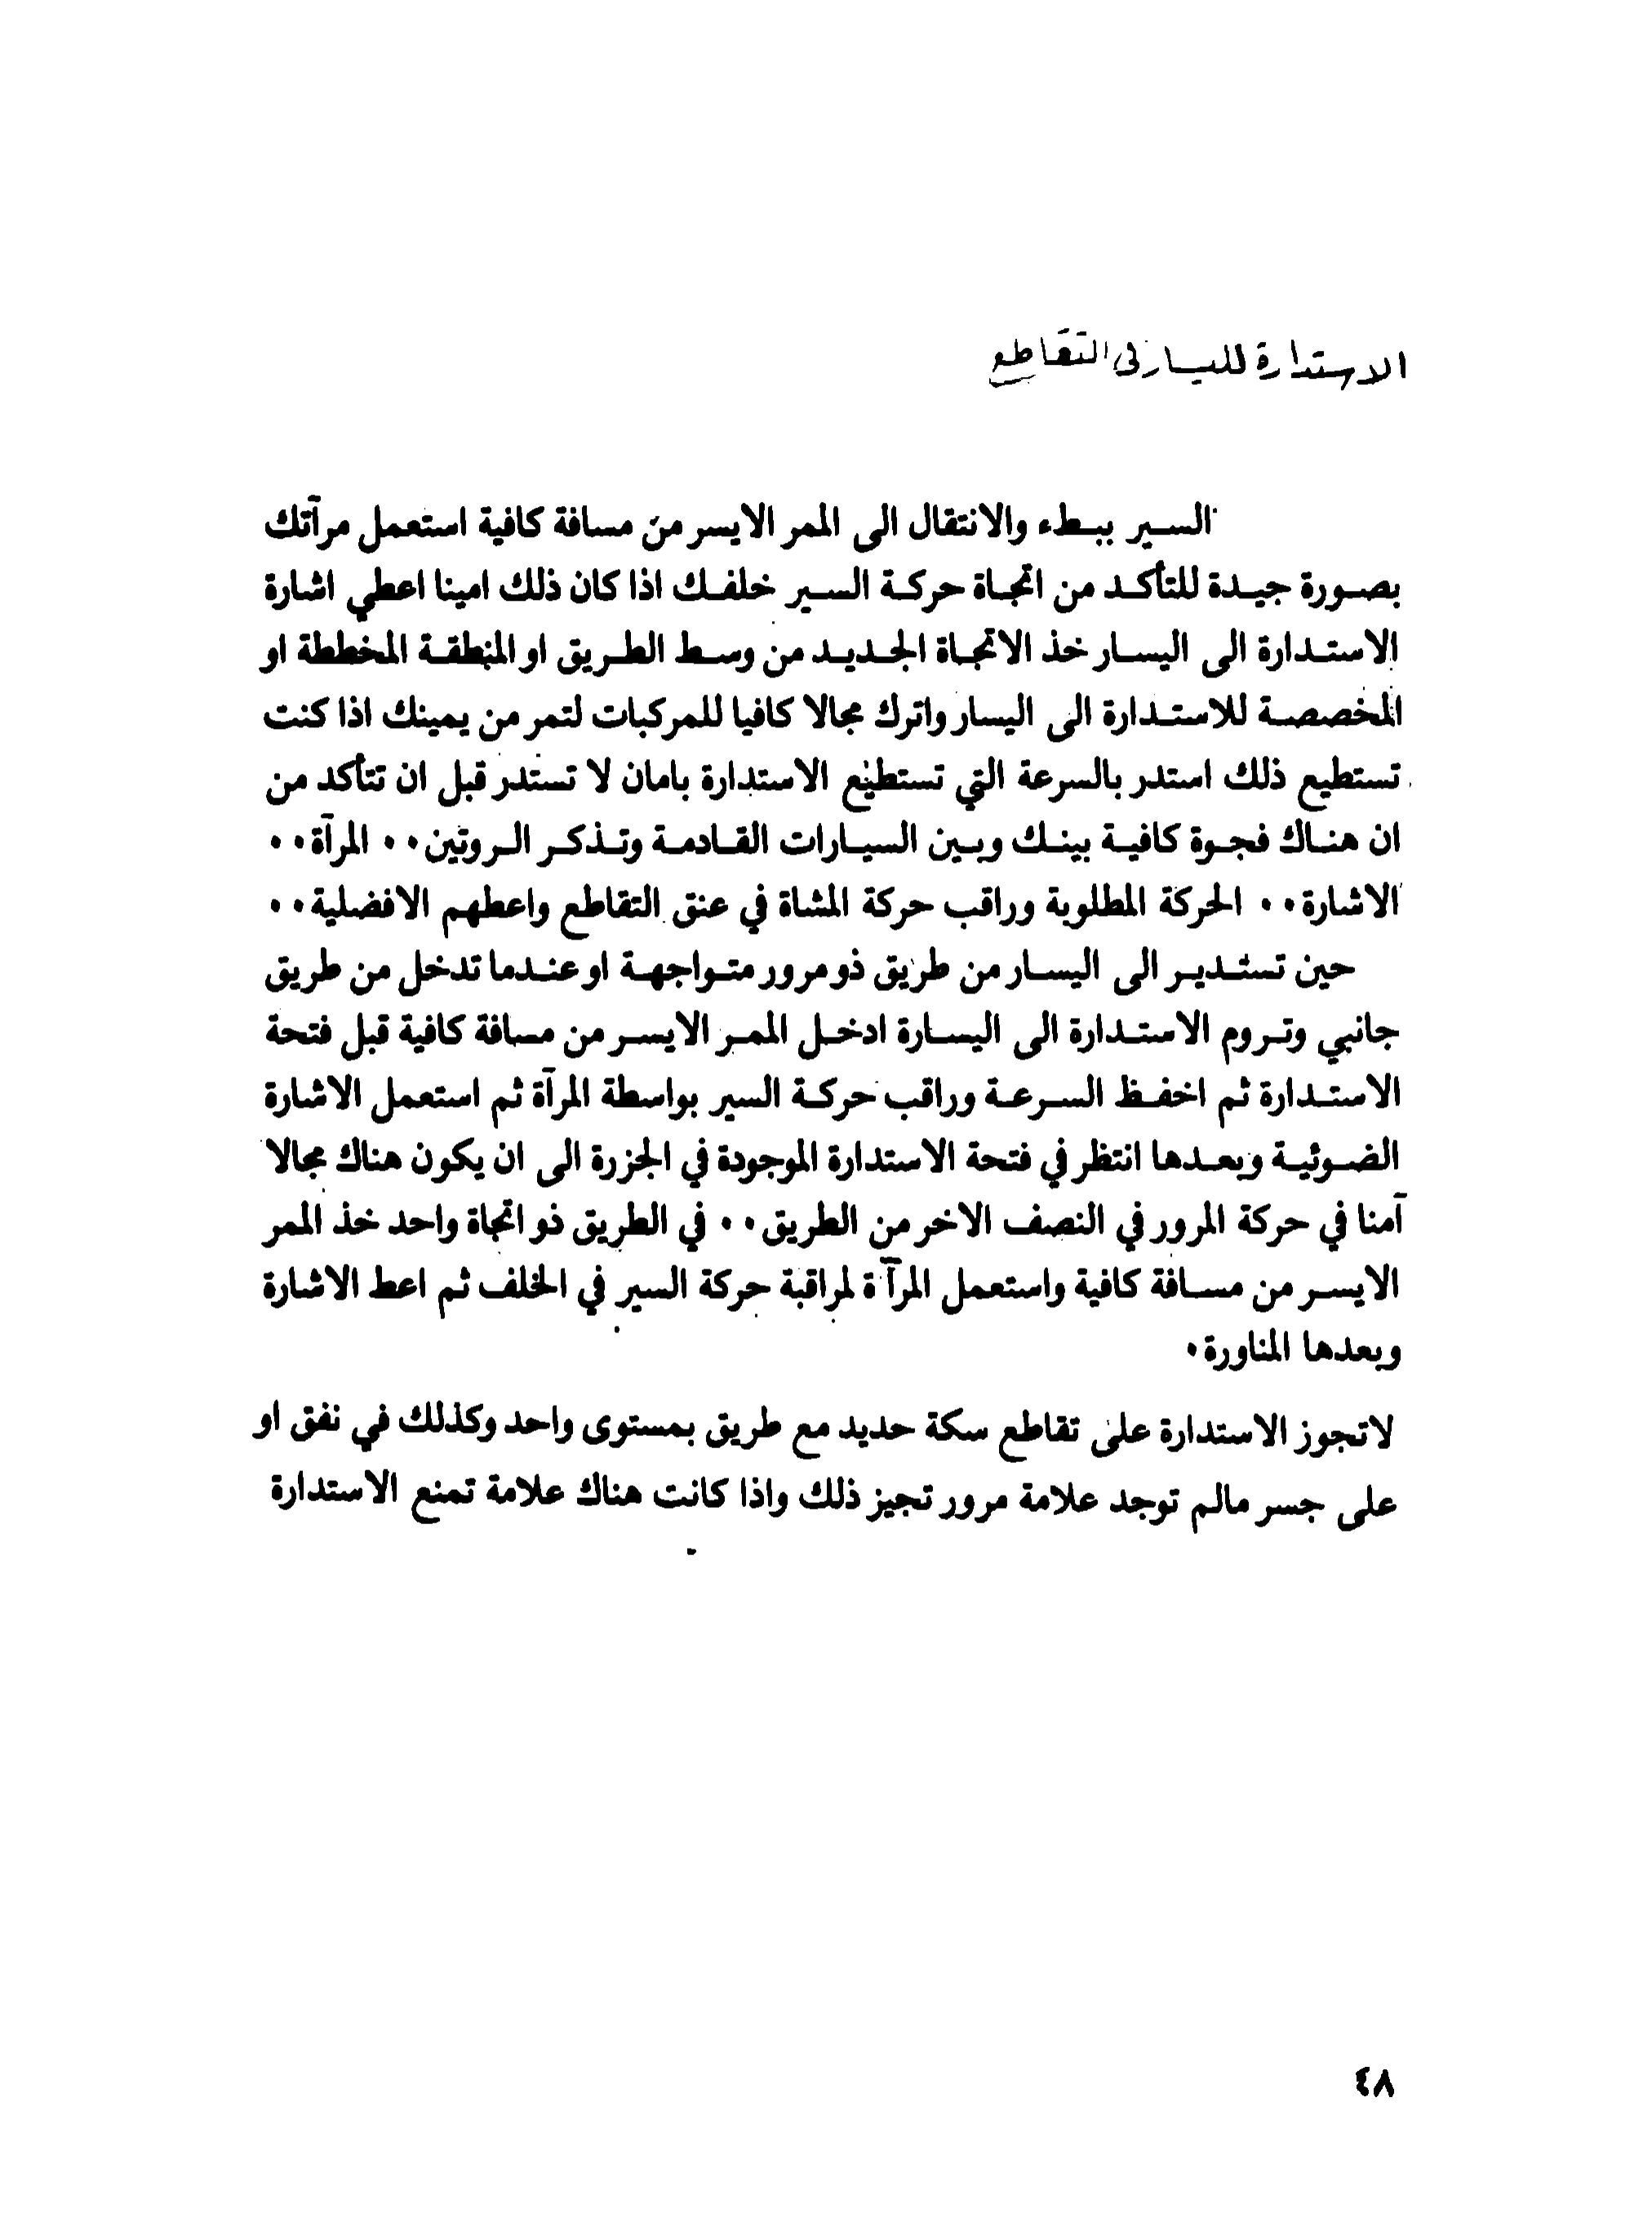 الاستدارة لليسار في التقاطع
السير ببطء والانتقال الى الممر الايسر من مسافة كافية استعمل مرآتك
بصورة جيدة للتأكد من اتجاة حركة السير خلفك اذا كان ذلك امينا اعطي اشارة
الاستدارة الى اليسار خذ الاتجاة الجديد من وسط الطريق او المنطقة المخططة او
المخصصة للاستدارة الى اليسار واترك مجالا كافيا للمركبات لتمر من يمينك اذا كنت
تستطيع ذلك استدر بالسرعة التي تستطيع الاستدارة بامان لا تستدر قبل ان تتأكد من
ان هناك فجوة كافية بينك وبين السيارات القادمة وتذكر الروتين٠٠ المرآة٠٠
الاشارة٠٠ الحركة المطلوبة وراقب حركة المشاة في عنق التقاطع واعطهم الافضلية٠٠
حين تستدير الى اليسار من طريق ذو مرور متواجهة او عندما تدخل من طريق
جانبي وتروم الاستدارة الى اليسارة ادخل الممر الايسر من مسافة كافية قبل فتحة
الاستدارة ثم اخفظ السرعة وراقب حركة السير بواسطة المرآة ثم استعمل الاشارة
الضوئية وبعدها انتظر في فتحة الاستدارة الموجودة في الجزرة الى ان يكون هناك مجالا
آمنا في حركة المرور في النصف الاخر من الطريق٠٠ في الطريق ذو اتجاة واحد خذ الممر
الايسر من مسافة كافية واستعمل المرآة لمراقبة حركة السير في الخلف ثم اعط الاشارة
وبعدها المناورة٠
لاتجوز الاستدارة على تقاطع سكة حديد مع طريق بمستوى واحد وكذلك في نفق او
على جسر مالم توجد علامة مرور تجيز ذلك واذا كانت هناك علامة تمنع الاستدارة
٤٨